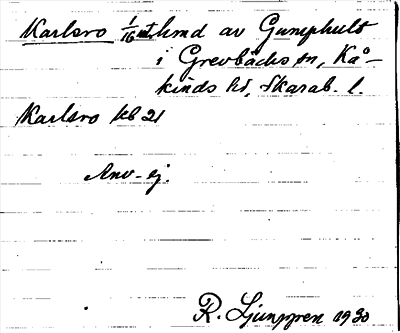 Karlsro 1/16 mtl hmd av Gumphult
i Grevbäcks sn, Kå-
kinds hd, Skarab. l.
Karlsro kb 21
Anv. ej.
R. Ljunggren 1930